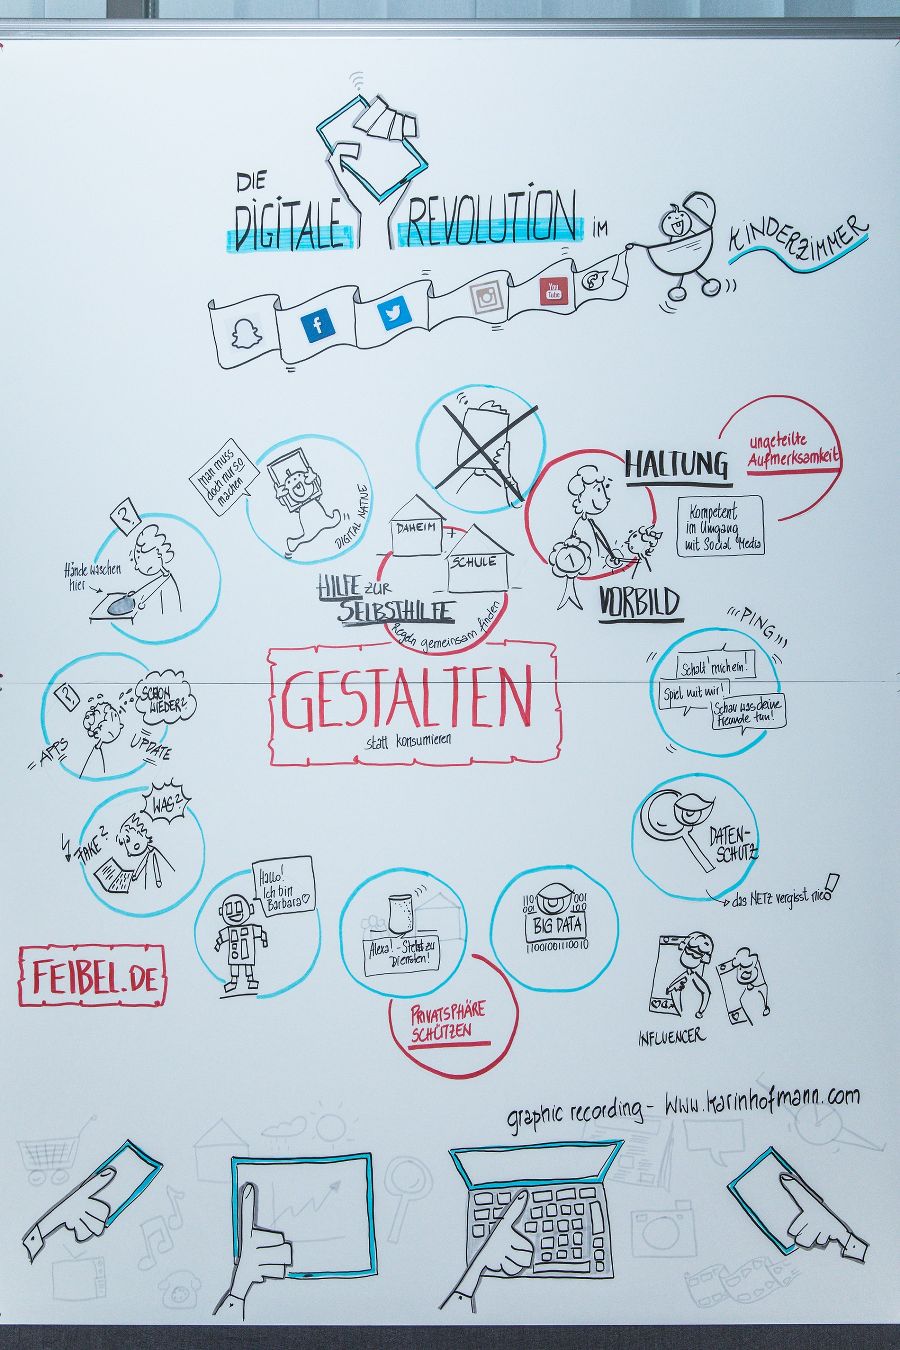 DIE
DIGITALE REVOLUTION IM
KINDERZIMMER
You
Tube
man muss
doch nur so
machen
DIGITAL NATIVE
HALTUNG
ungeteilte
Aufmerksamkeit
Kompetent
im Umgang
mit Social Media
VORBILD
1
DAHEIM
+
SCHULE
HILFE ZUR
SELBSTHILFE
Regeln gemeinsam finden
?
Hände waschen
hier
GESTALTEN
statt konsumieren
?
SCHON
WIEDER?
APPS
UPDATE
PING
Schalt' mich ein!
Spiel mit mir!
Schau was deine
Freunde tun!
WAS?
FAKE?
DATEN-
SCHUTZ
das NETZ vergisst nie!
Hallo!
Ich bin
Barbara
Alexa! - Stets zu
Diensten!
101 001
001 100
BIG DATA
1100100110010
FEIBEL.DE
PRIVATSPHÄRE
SCHÜTZEN
INFLUENCER
graphic recording - www.karinhofmann.com